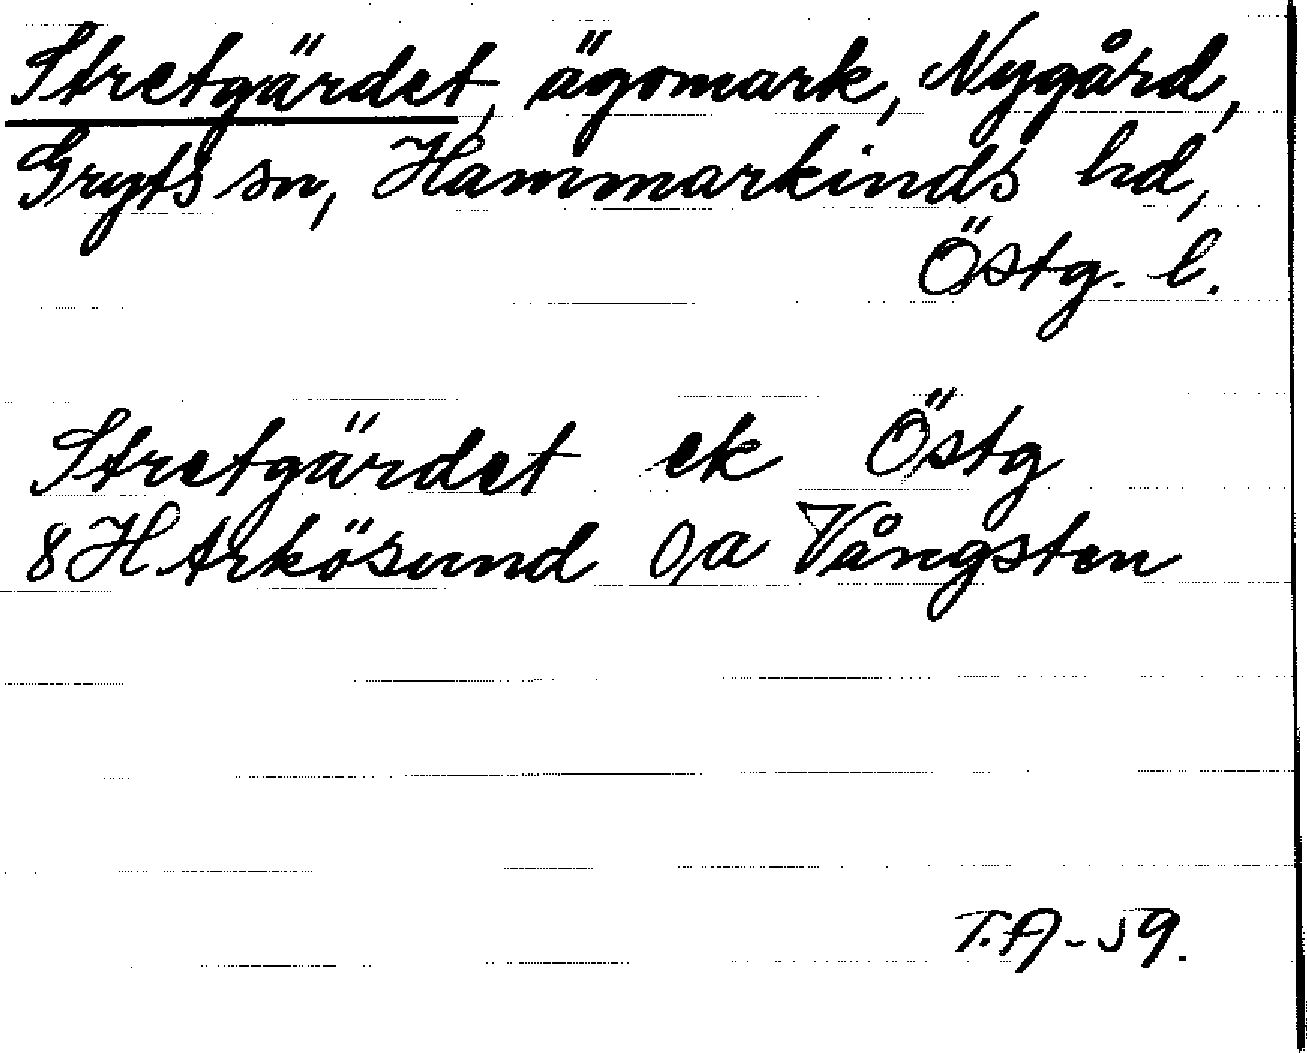 Stretgärdet, ägomark, Nygård,
Gryts sn, Hammarkinds hd,
Östg. l.
Stretgärdet ek Östg
8H Arkösund Oja Vångsten
T.A-59.